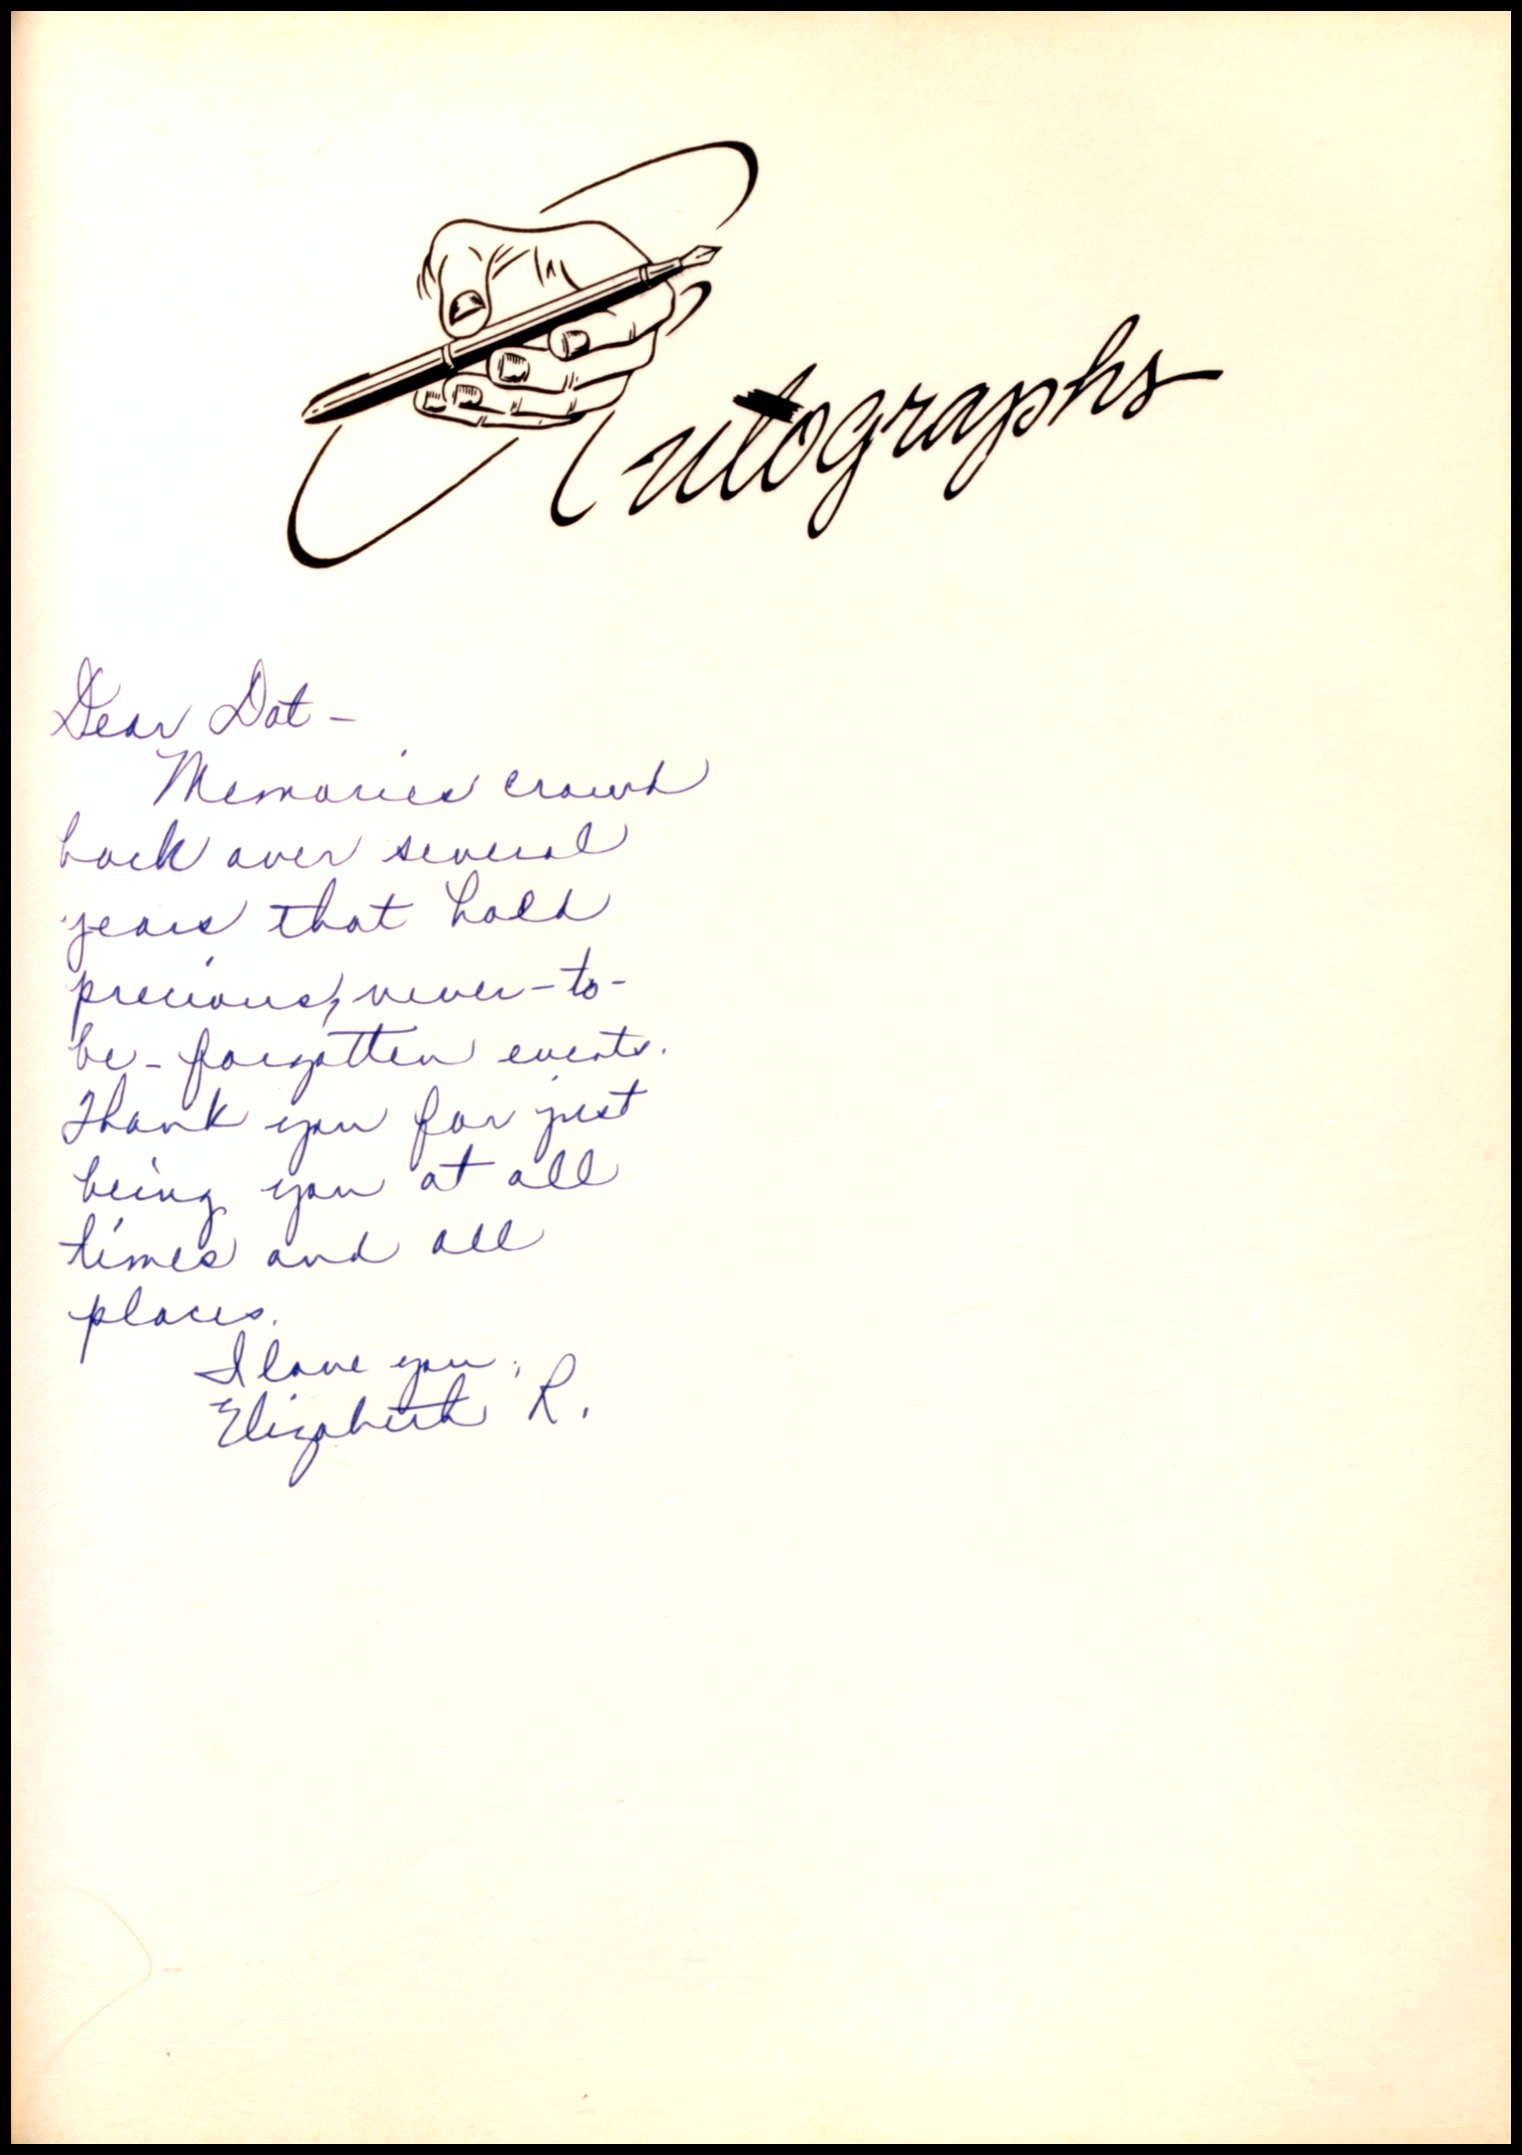 Autographs
Dear Dot -
Memories crowd
back over several
years that hold
precious, never-to-
be-forgotten events.
Thank you for just
being you at all
times and all
places.
I love you,
Elizabeth R.